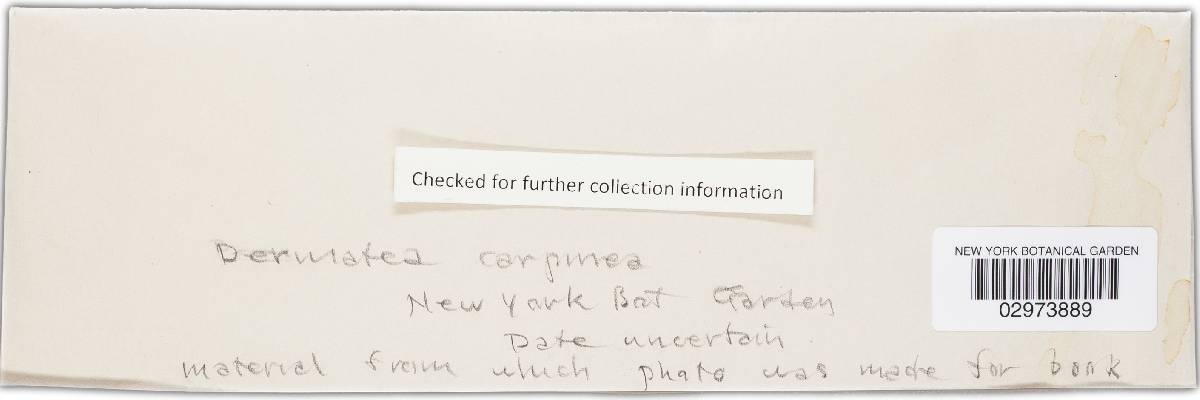 Checked for further collection information
Dermatea carpinea
New York Bot Garden
Date uncertain
material from which photo was made for book
NEW YORK BOTANICAL GARDEN
02973889